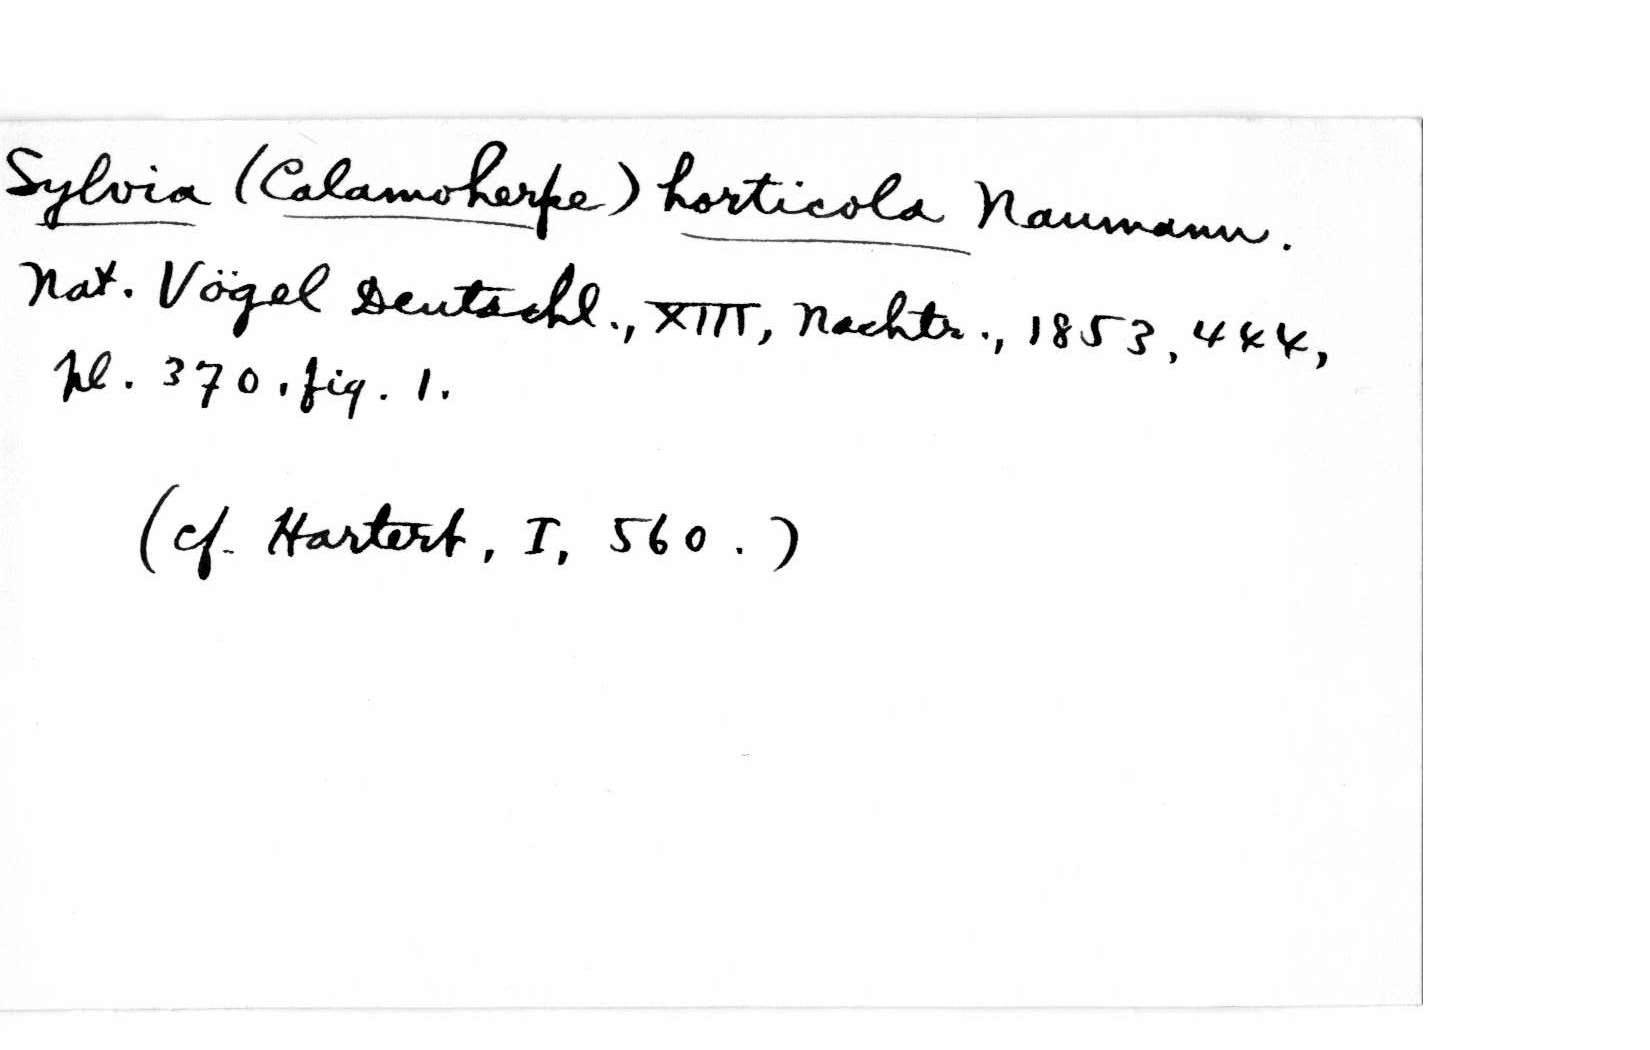 Sylvia (Calamoherpe) horticola Naumann.
Nat. Vögel Deutschl., XIII, Nachtr., 1853, 444,
pl. 370. fig. 1.
(cf. Hartert, I, 560.)